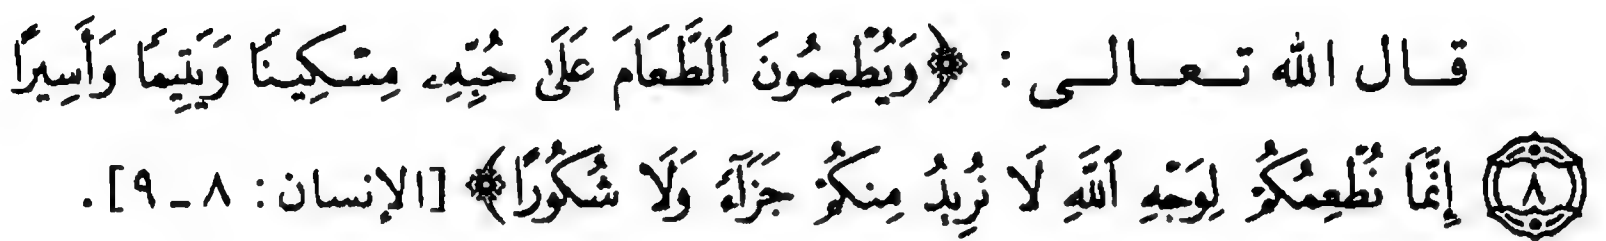 قال الله تعالى: ﴿وَيُطْعِمُونَ ٱلطَّعَامَ عَلَىٰ حُبِّهِۦ مِسْكِينًا وَيَتِيمًا وَأَسِيرًا
٨ إِنَّمَا نُطْعِمُكُمْ لِوَجْهِ ٱللَّهِ لَا نُرِيدُ مِنكُمْ جَزَآءً وَلَا شُكُورًا﴾ [الإنسان: ٨ - ٩].